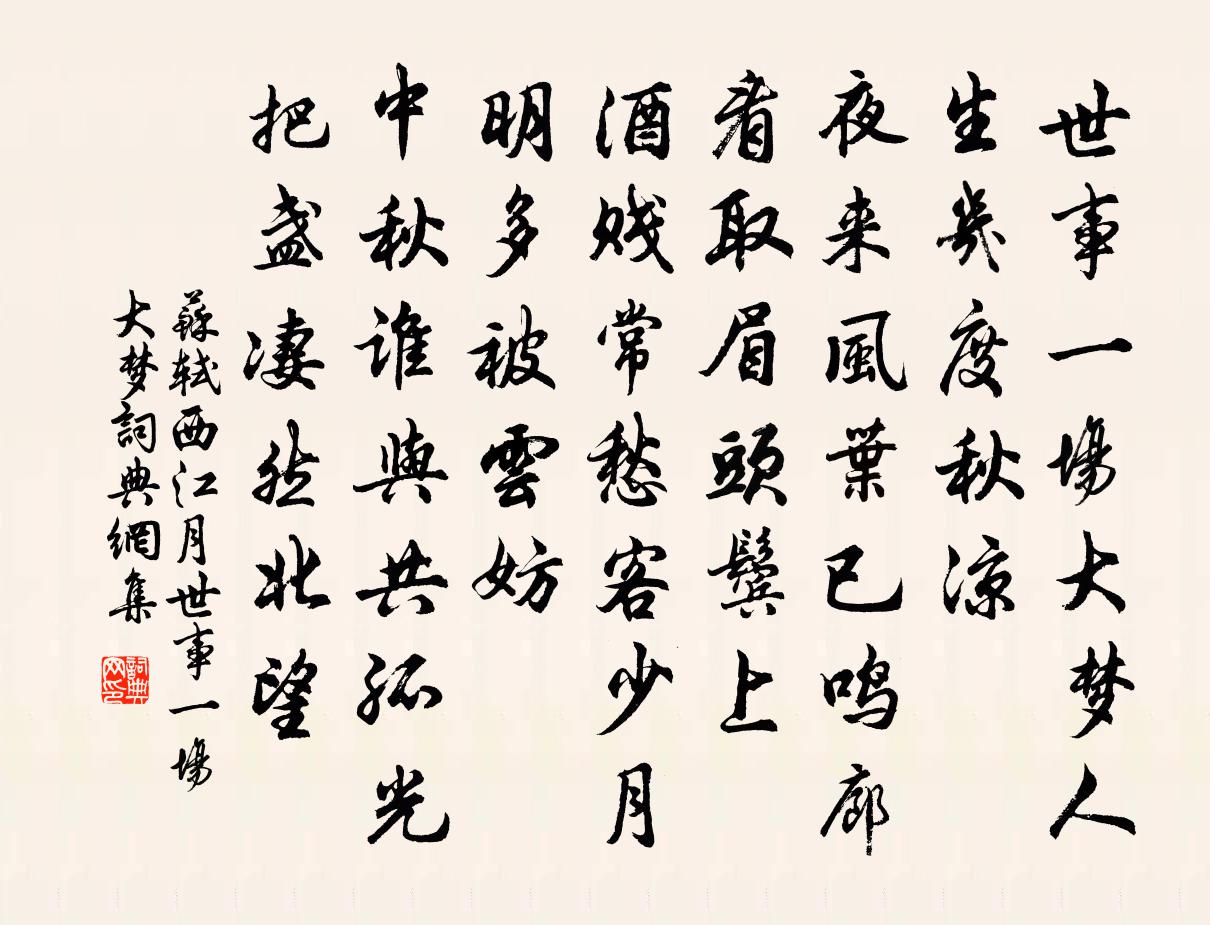 世事一場大梦人
生幾度秋涼
夜来風葉已鳴廊
看取眉頭鬓上
酒贱常愁客少月
明多被雲妨
中秋誰與共孤光
把盏凄然北望
蘇轼西江月世事一場
大梦詞典網集
詞典
网印